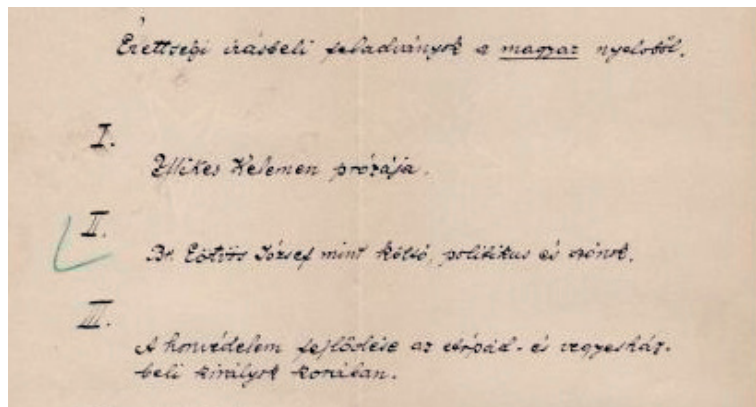 Érettségi írásbeli feladványok a magyar nyelvből.
I.
Mikes Kelemen prózája.
II.
Br. Eötvös József mint költő, politikus és szónok.
III.
A honvédelem fejlődése az Árpád- és vegyesház-
beli királyok korában.